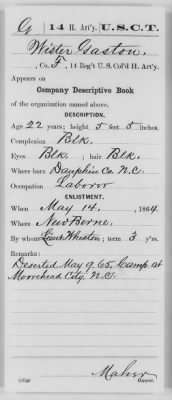 G | 14 H. Art'y. | U.S.C.T.
Wister Gaston.
, Co. F, 14 Reg't U.S. Col'd H. Art'y.
Appears on
Company Descriptive Book
of the organization named above.
DESCRIPTION.
Age 22 years; height 5 feet 5 inches.
Complexion Blk.
Eyes Blk. ; hair Blk.
Where born Dauphin Co. N.C.
Occupation Laborer
ENLISTMENT.
When May 14, 1864.
Where New Berne.
By whom Lieut Wheaton; term 3 y'rs.
Remarks:
Deserted May 9. 65. Camp at
Moorehead City, N.C.
Maher
Copyist.